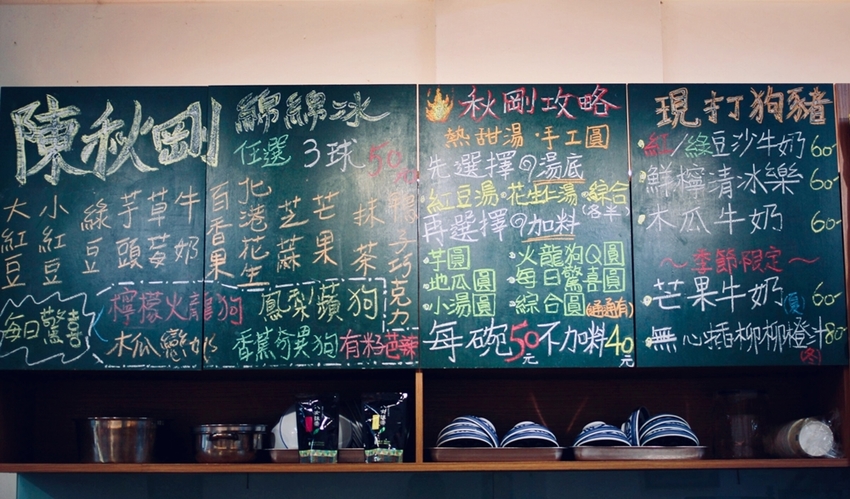 陳秋剛
綿綿冰
任選 3球 50元
大紅豆
小紅豆
綠豆
芋頭
草莓
牛奶
百香果
北港花生
芝蔴
芒果
抹茶
巧克力
每日驚喜
檸檬火龍狗
鳳梨蘋狗
木瓜戀奶
香蕉奇異狗
有籽芭辣
秋剛攻略
熱甜湯·手工圓
先選擇湯底
紅豆湯·花生湯·綜合(各半)
再選擇加料
芋圓
火龍狗Q圓
地瓜圓
每日驚喜圓
小湯圓
綜合圓(通通有)
每碗50元不加料40元
現打狗豬
紅/綠豆沙牛奶 60-
鮮檸清冰樂 60-
木瓜牛奶 60
~季節限定~
芒果牛奶(夏) 60-
無心插柳柳橙汁 80-
(冬)